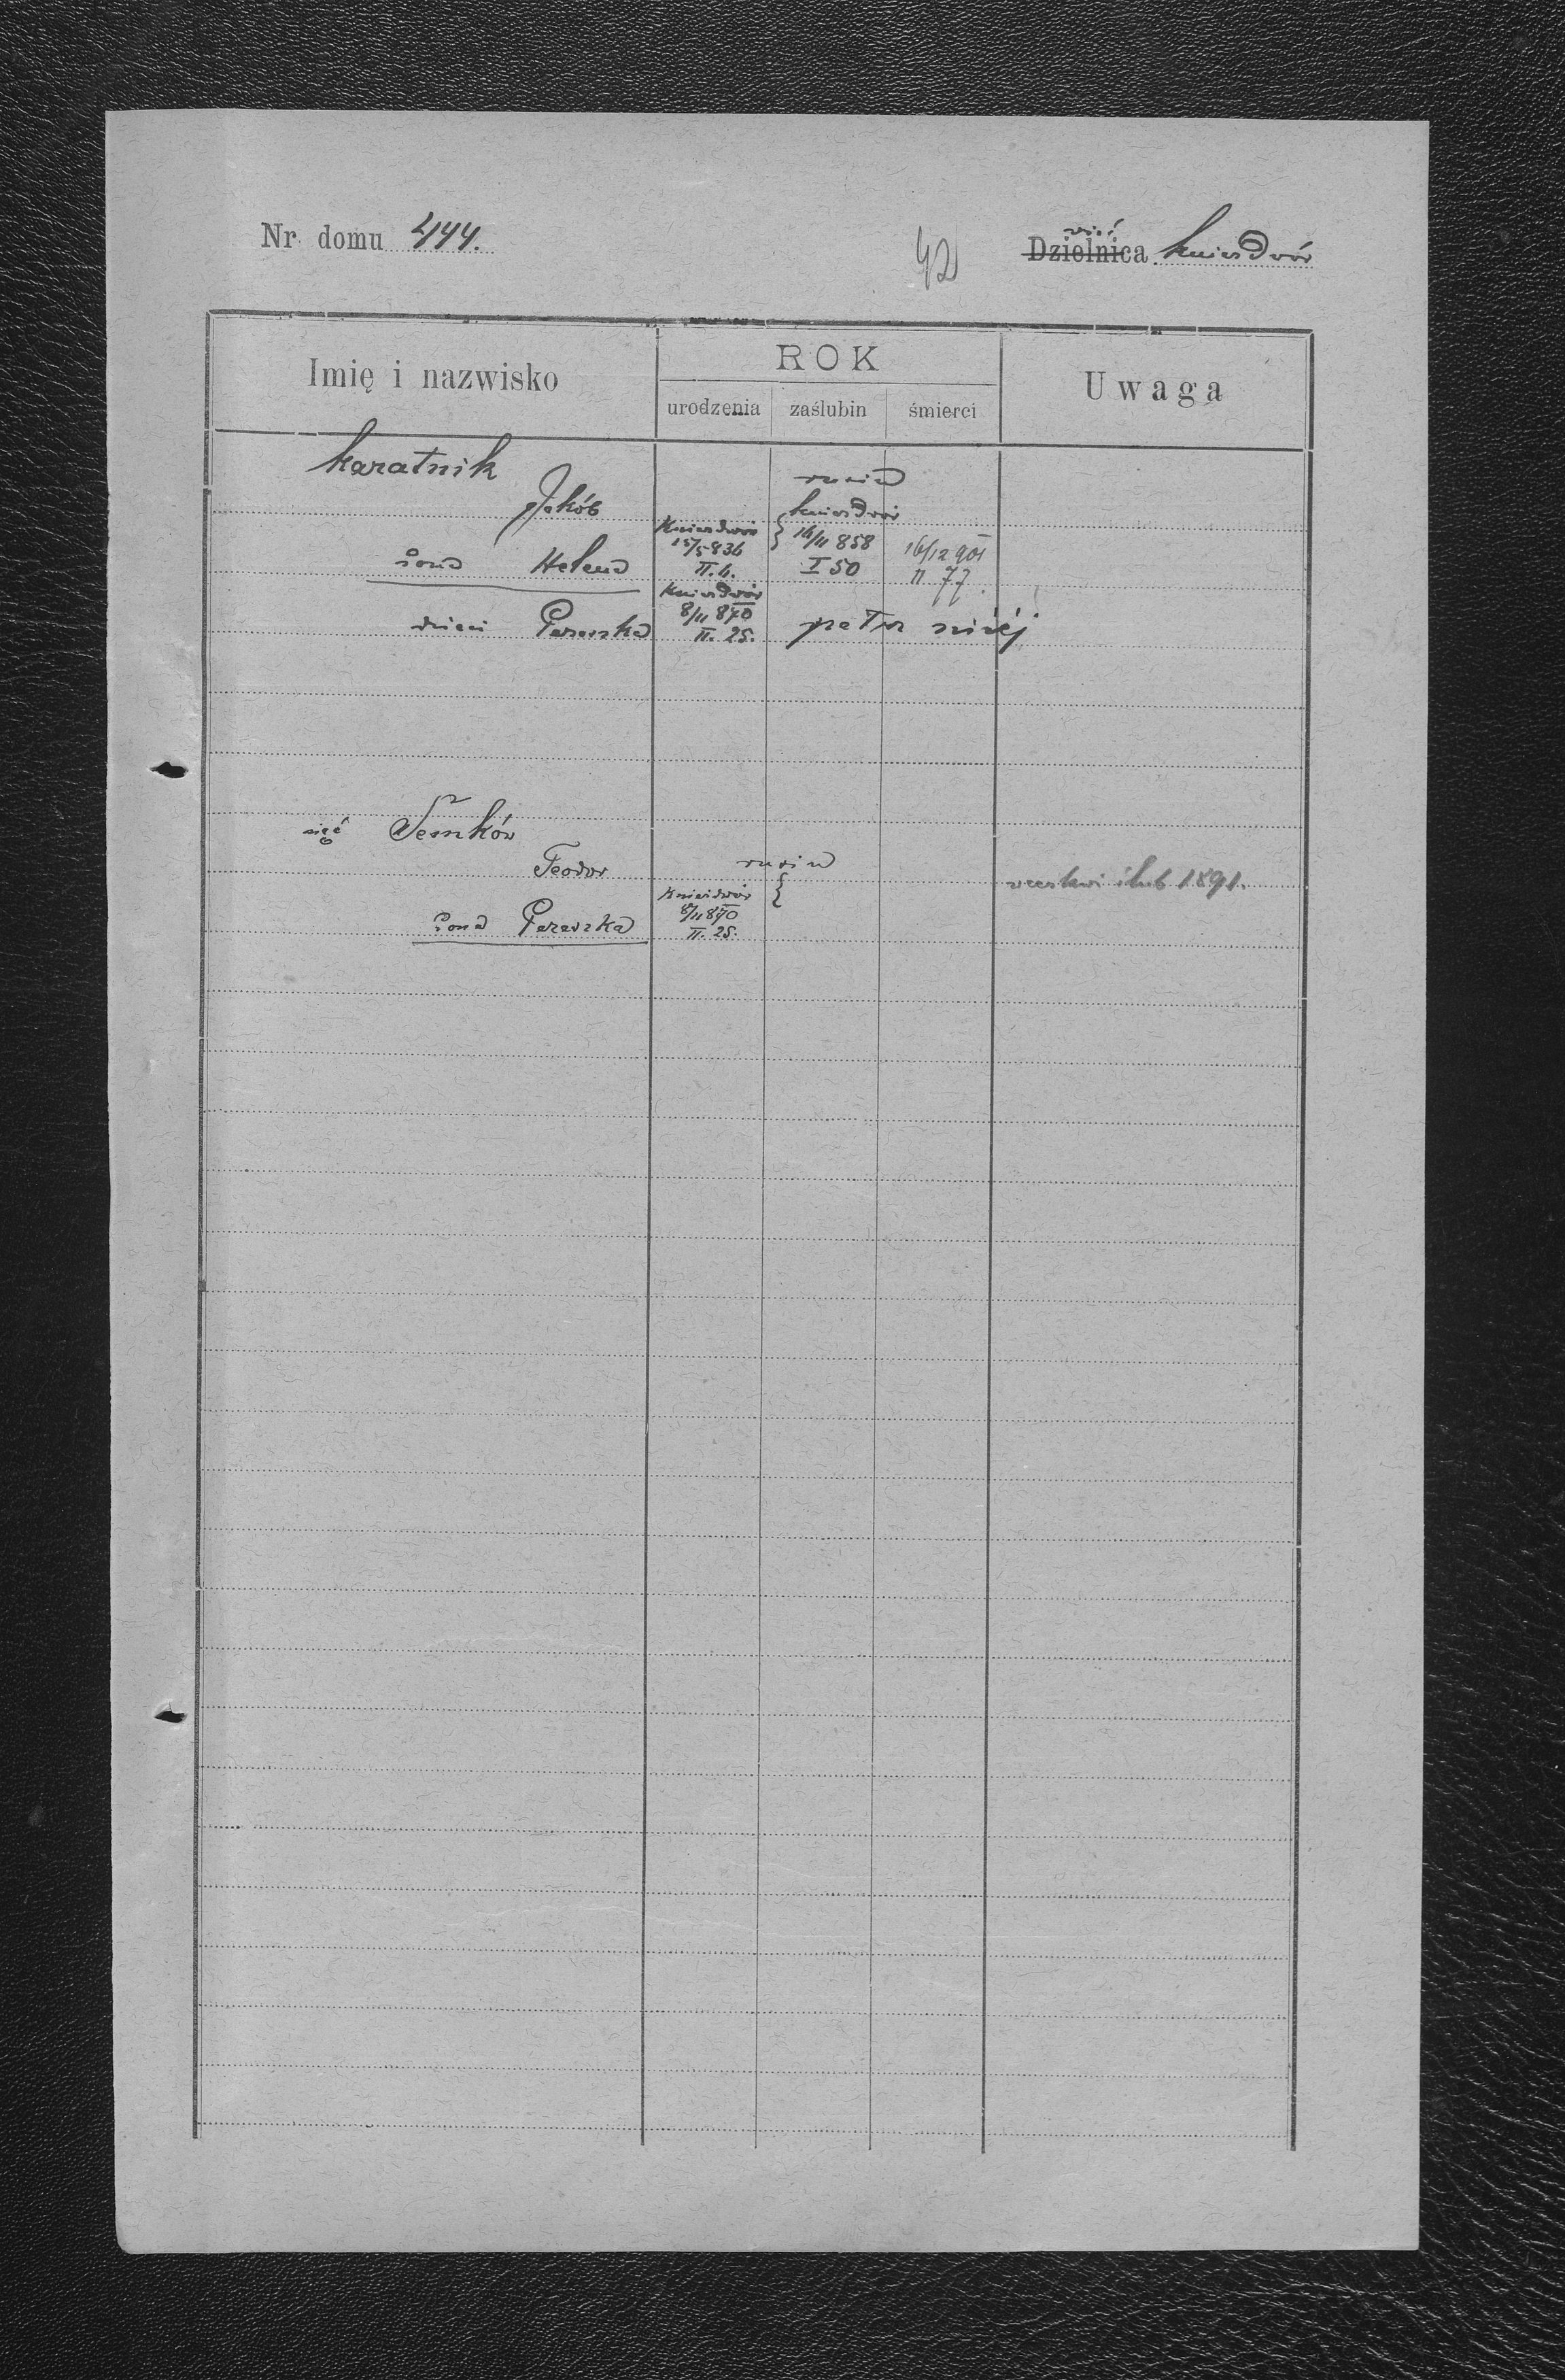 Nr domu 444.
42
wieś
Dzielnica Kniasdwór
Imię i nazwisko
ROK
urodzenia zaślubin śmierci
Uwaga
Karatnik
rusin
Jakób
Kniasdwór
Kniasdwór
15/5 836 } 14/11 858 16/12 901
żona Helena II. 4. I 50 II 77.
Kniasdwór
8/11 870
dzieci Paraszka II. 25. patrz niżej
zięć Semków
Teodor rusin
Kniasdwór { ślub 1891.
8/11 870
żona Paraszka II. 25.